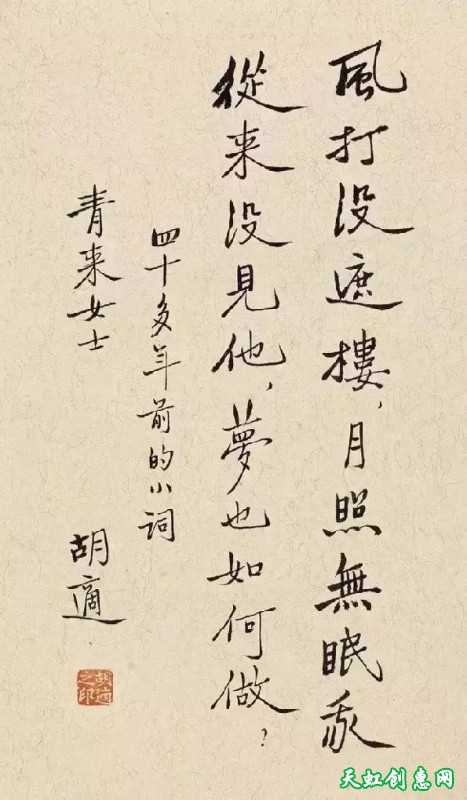 風打没遮樓,月照無眠我
從来没見他,夢也如何做?
四十多年前的小词
青来女士
胡適
胡適之印
天虹创惠网